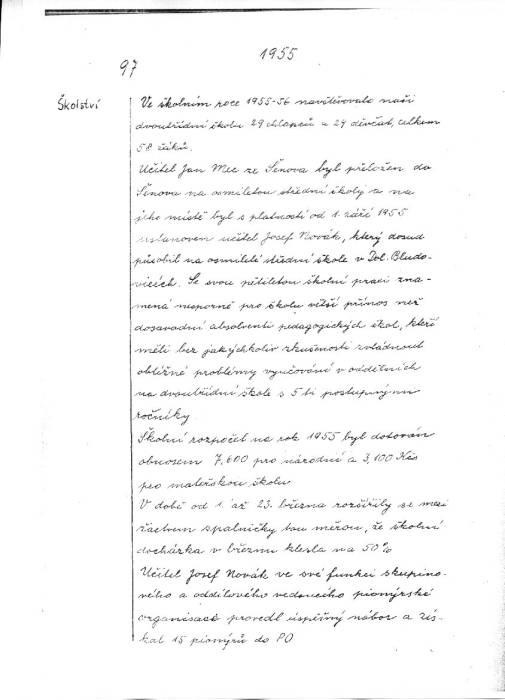 1955
97
Školství
Ve školním roce 1955-56 navštěvovalo naši
dvoutřídní školu 29 chlapců a 29 děvčat, celkem
58 žáků.
Učitel Jan Mec ze Šenova byl přeložen do
Šenova na osmiletou střední školy a na
jeho místě byl s platností od 1. září 1955
ustanoven učitel Josef Novák, který dosud
působil na osmileté střední škole v Dol. Bludo-
vicích. Se svou pětiletou školní praxí zna-
mená nesporně pro školu větší přínos než
dosavadní absolventi pedagogických škol, kteří
měli bez jakýchkoliv zkušeností zvládnout
obtížné problémy vyučování v odděleních
na dvoutřídní škole s 5ti postupnými
ročníky
Školní rozpočet na rok 1955 byl dotován
obnosem 7,600 pro národní a 3,100 Kčs
pro mateřskou školu
V době od 1. až 23. března rozšířily se mezi
žactvem spalničky tou měrou, že školní
docházka v březnu klesla na 50%
Učitel Josef Novák ve své funkci skupino-
vého a oddílového vedoucího pionýrské
organisace provedl úspěšný nábor a zís-
kal 15 pionýrů do PO